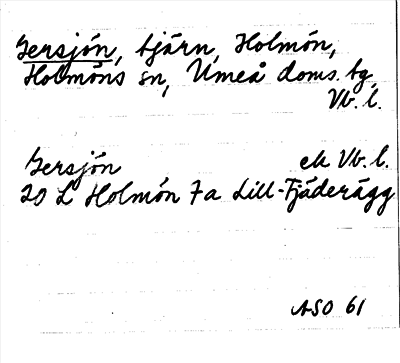 Gersjön, tjärn, Holmön,
Holmöns sn, Umeå doms. tg,
Vb. l.
Gersjön ek Vb. l.
20 L Holmön 7a Lill-Fjäderägg
ASO 61